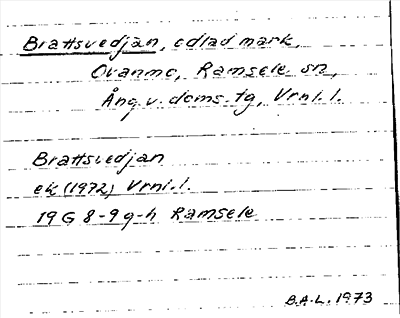 Brattsvedjan, odlad mark,
Ovanmo, Ramsele sn,
Ång. v. doms. tg, Vrnl. l.
Brattsvedjan
ek (1972) Vrnl. l.
19G 8-9 g-h Ramsele
B.A.L. 1973